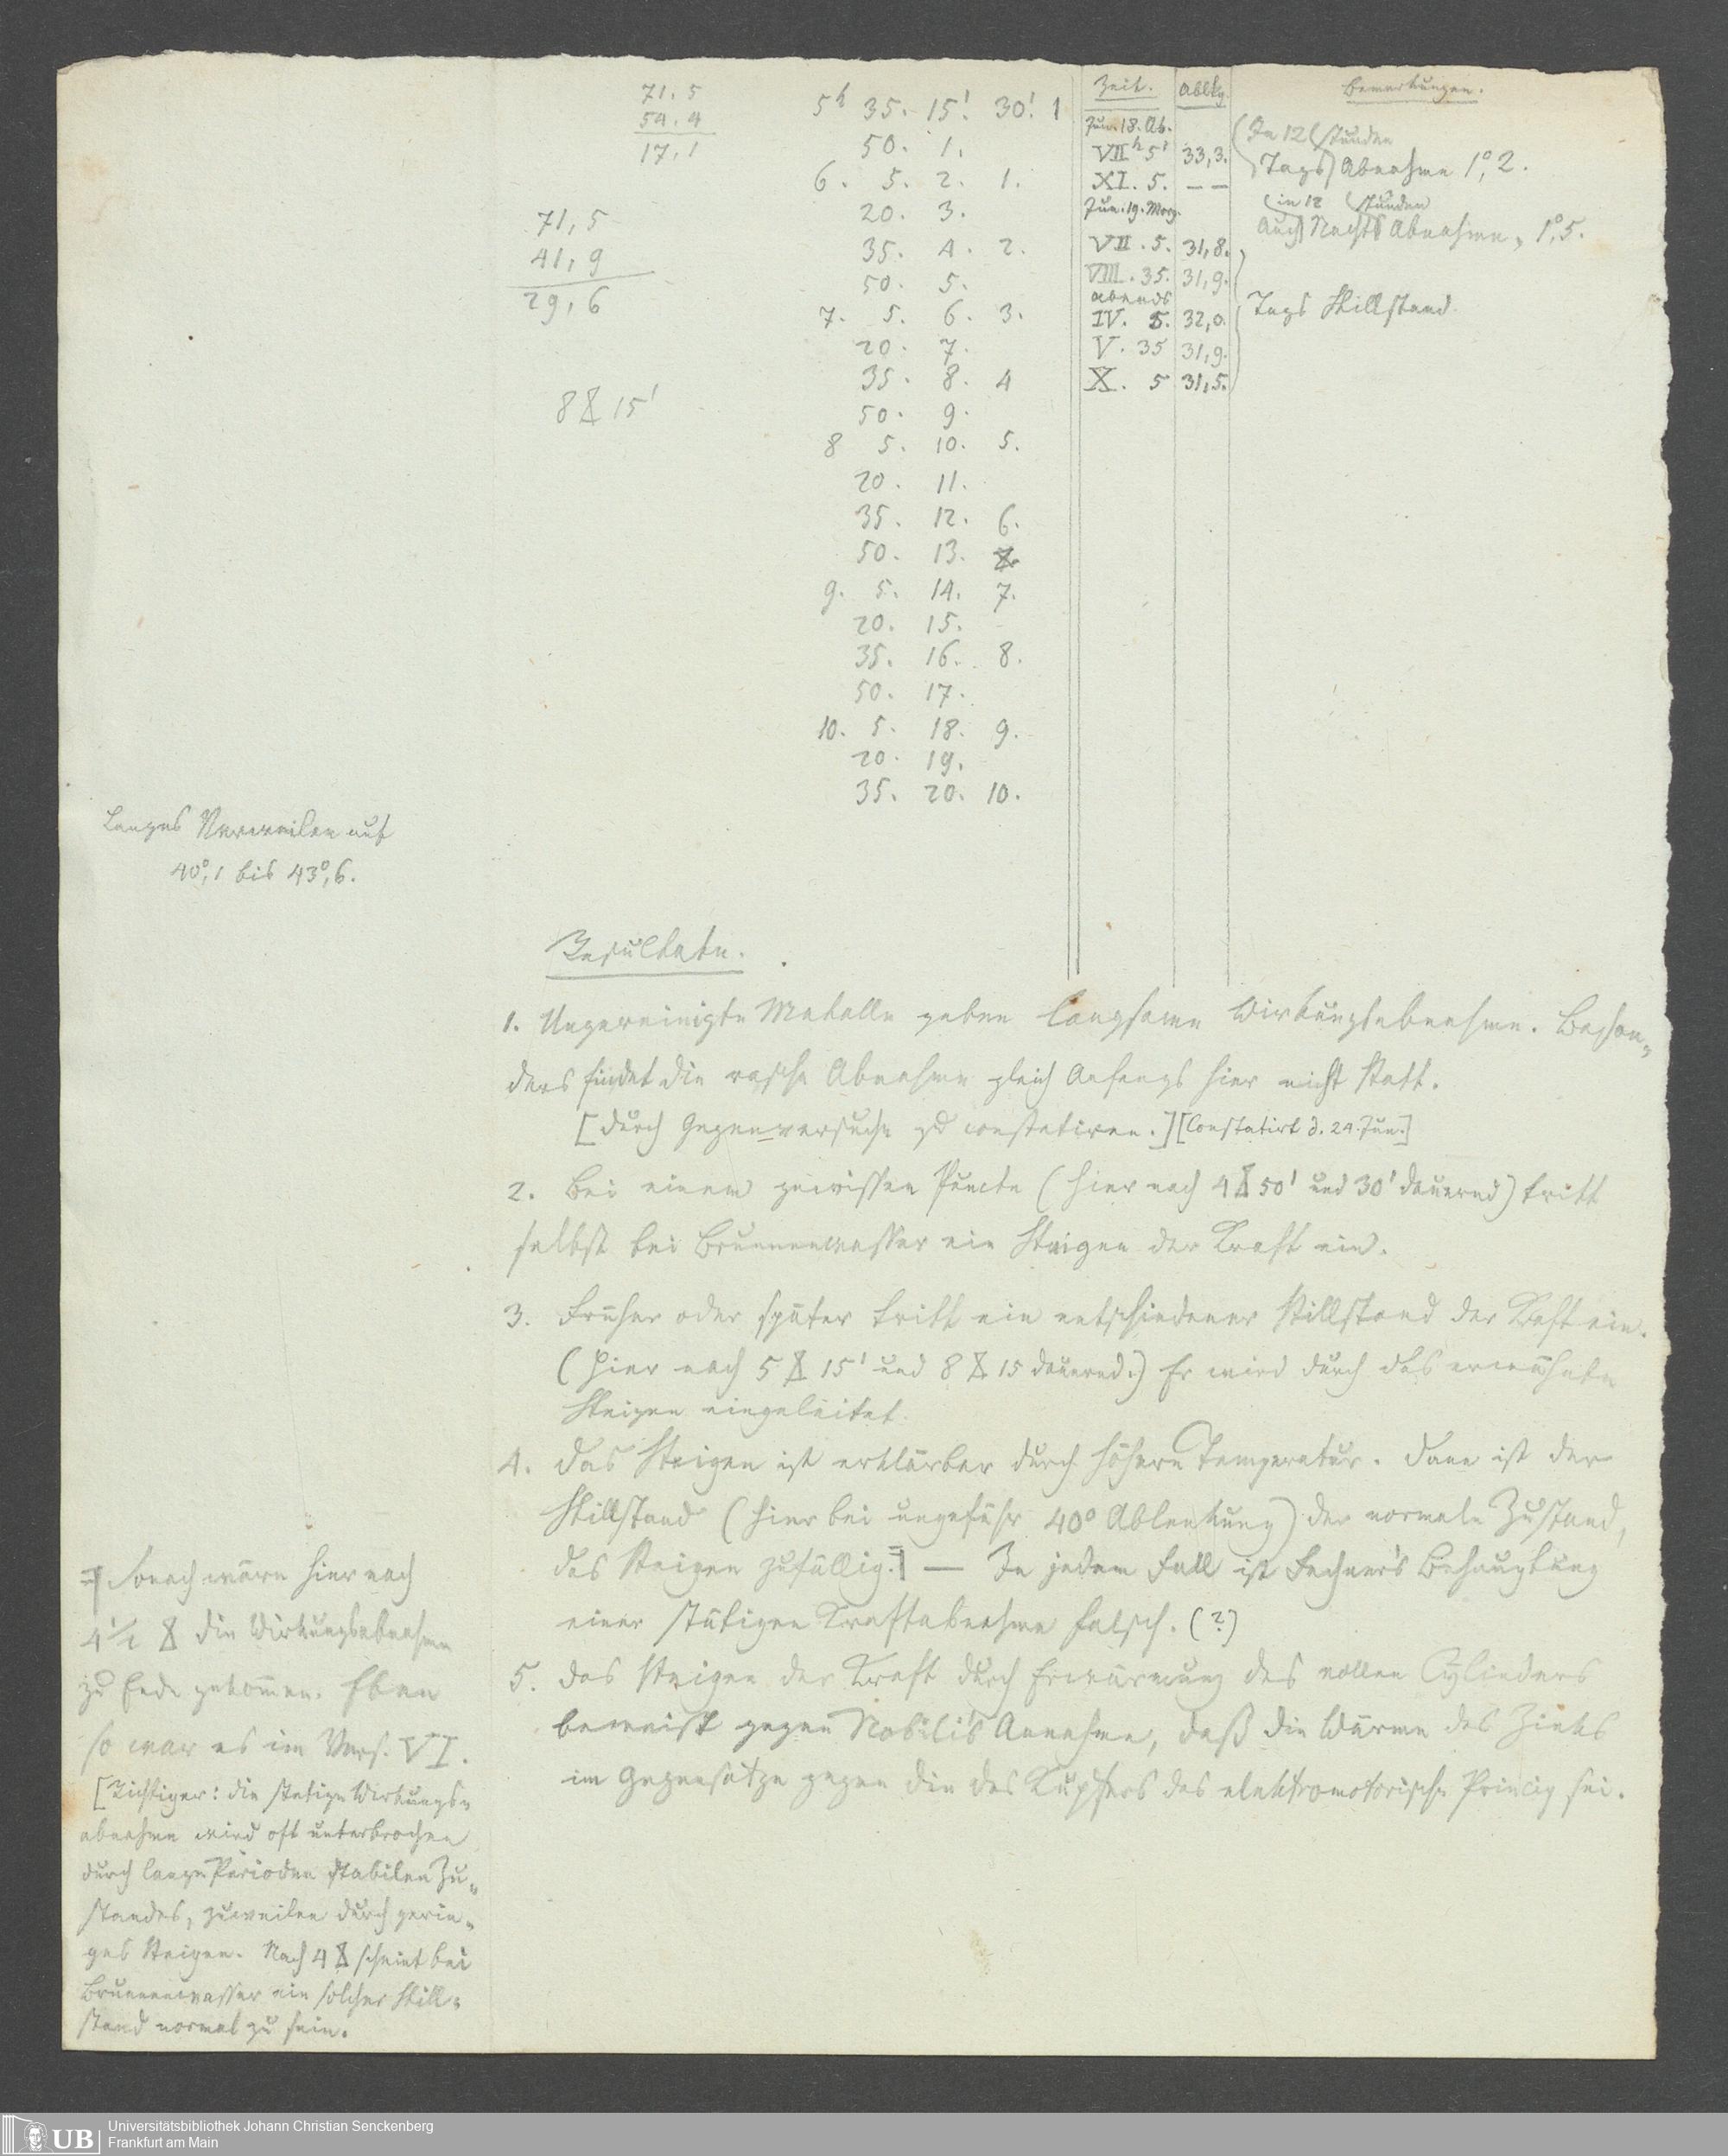 71,5
54,4
17,1
71,5
41,9
29,6
8 ⧖ 15'
5h 35. 15'. 30'. 1
50. 1.
6. 5. 2. 1.
20. 3.
35. 4. 2.
50. 5.
7. 5. 6. 3.
20. 7.
35. 8. 4
50. 9.
8 5. 10. 5.
20. 11.
35. 12. 6.
50. 13.
9. 5. 14. 7.
20. 15.
35. 16. 8.
50. 17.
10. 5. 18. 9.
20. 19.
35. 20. 10.
Zeit. Ablkg. Bemerkungen.
Jun. 18. Ab.
VIIh 5' 33,3.
XI. 5. — —
Jun. 19. Morg.
VII. 5. 31,8.
VIII. 35. 31,9.
abends
IV. 5. 32,0.
V. 35 31,9.
X. 5 31,5.
In 12 Stunden
Tags Abnahme 1°,2.
in 12 Stunden
Auch Nachts Abnahme 1°,5.
Tags Stillstand.
Langes Verweilen auf
40°,1 bis 43°,6.
Resultate.
1. Ungereinigte Metalle geben langsame Wirkungsabnahme. Beson-
ders findet die rasche Abnahme gleich Anfangs hier nicht Statt.
[Durch Gegenversuche zu constatiren.] [Constatirt d. 24. Jun.]
2. Bei einem gewissen Puncte (hier nach 4 ⧖ 50' und 30' dauernd) tritt
selbst bei Brunnenwasser ein Steigen der Kraft ein.
3. Früher oder später tritt ein entschiedener Stillstand der Kraft ein.
(Hier nach 5 ⧖ 15' und 8 ⧖ 15 dauernd.) Er wird durch das erwähnte
Steigen eingeleitet.
4. Das Steigen ist erklärbar durch höhere Temperatur. Dann ist der
Stillstand (hier bei ungefähr 40° Ablenkung) der normale Zustand,
das Steigen zufällig. — In jedem Fall ist Fechner's Behauptung
einer stätigen Kraftabnahme falsch. (?)
5. Das Steigen der Kraft durch Erwärmung des vollen Cylinders
beweist gegen Nobili's Annahme, daß die Wärme des Zinks
im Gegensatze gegen die des Kupfers das elektromotorische Princip sei.
Sonach wäre hier nach
4 1/2 ⧖ die Wirkungsabnahme
zu Ende gekommen. Eben
so war es im Vers. VI.
[Richtiger: die stetige Wirkungs-
abnahme wird oft unterbrochen
durch lange Perioden stabilen Zu-
standes, zuweilen durch gerin-
ges Steigen. Nach 4 ⧖ scheint bei
Brunnenwasser ein solcher Still-
stand normal zu sein.
UB Universitätsbibliothek Johann Christian Senckenberg
Frankfurt am Main